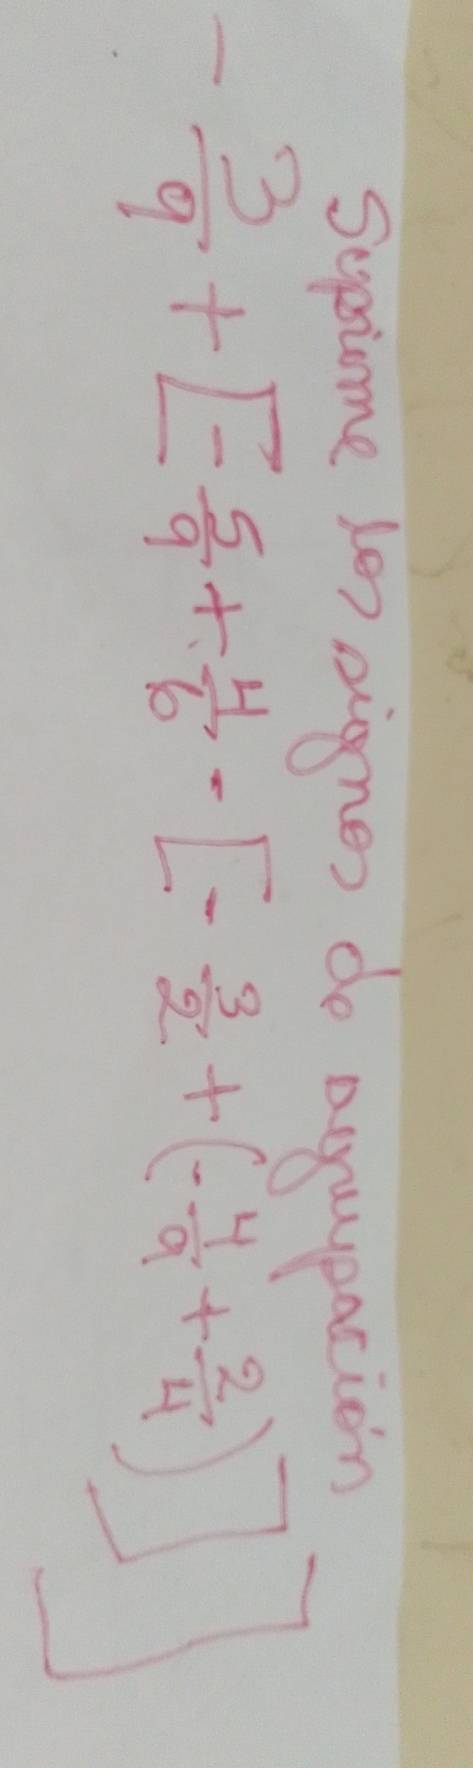 Suprime los signos de agrupación
- 3/9 + [- 5/9 + 4/6 - [- 3/2 + (- 4/9 + 2/4)]]